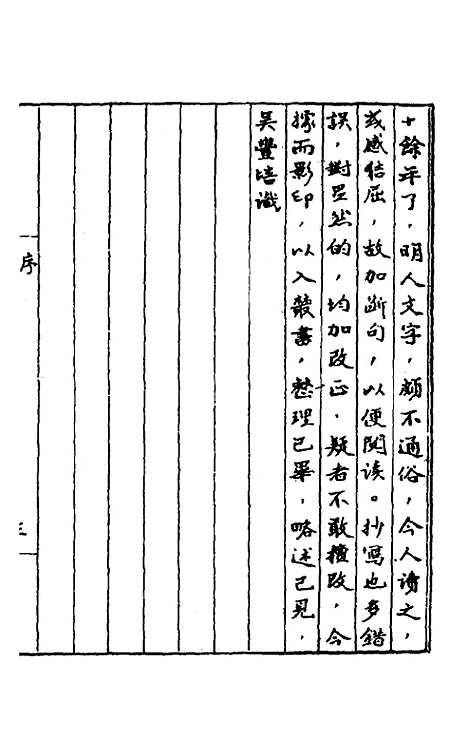 十餘年了，明人文字，頗不通俗，今人讀之，
或感结屈，故加斷句，以便閱读。抄寫也多錯
誤，對显然的，均加改正，疑者不敢擅改，今
據而影印，以入叢書，整理已畢，略述己見，
吴豐培識
序
三